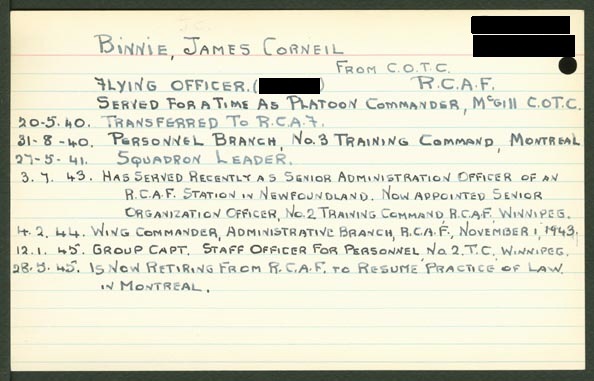 BINNIE, JAMES CORNEIL
FROM C.O.T.C.
FLYING OFFICER. ( ) R.C.A.F.
SERVED FOR A TIME AS PLATOON COMMANDER, McGILL C.O.T.C.
20-5.40. TRANSFERRED TO R.C.A.F.
31-8-40. PERSONNEL BRANCH, No. 3 TRAINING COMMAND, MONTREAL
27-5-41. SQUADRON LEADER.
3.7.43. HAS SERVED RECENTLY AS SENIOR ADMINISTRATION OFFICER OF AN
R.C.A.F. STATION IN NEWFOUNDLAND. NOW APPOINTED SENIOR
ORGANIZATION OFFICER, No. 2 TRAINING COMMAND, R.C.A.F. WINNIPEG.
14.2.44. WING COMMANDER, ADMINISTRATIVE BRANCH, R.C.A.F., NOVEMBER 1, 1943.
12.1.45. GROUP CAPT. STAFF OFFICER FOR PERSONNEL No. 2. T.C. WINNIPEG.
28.5.45. IS NOW RETIRING FROM R.C.A.F. TO RESUME PRACTICE OF LAW
IN MONTREAL.